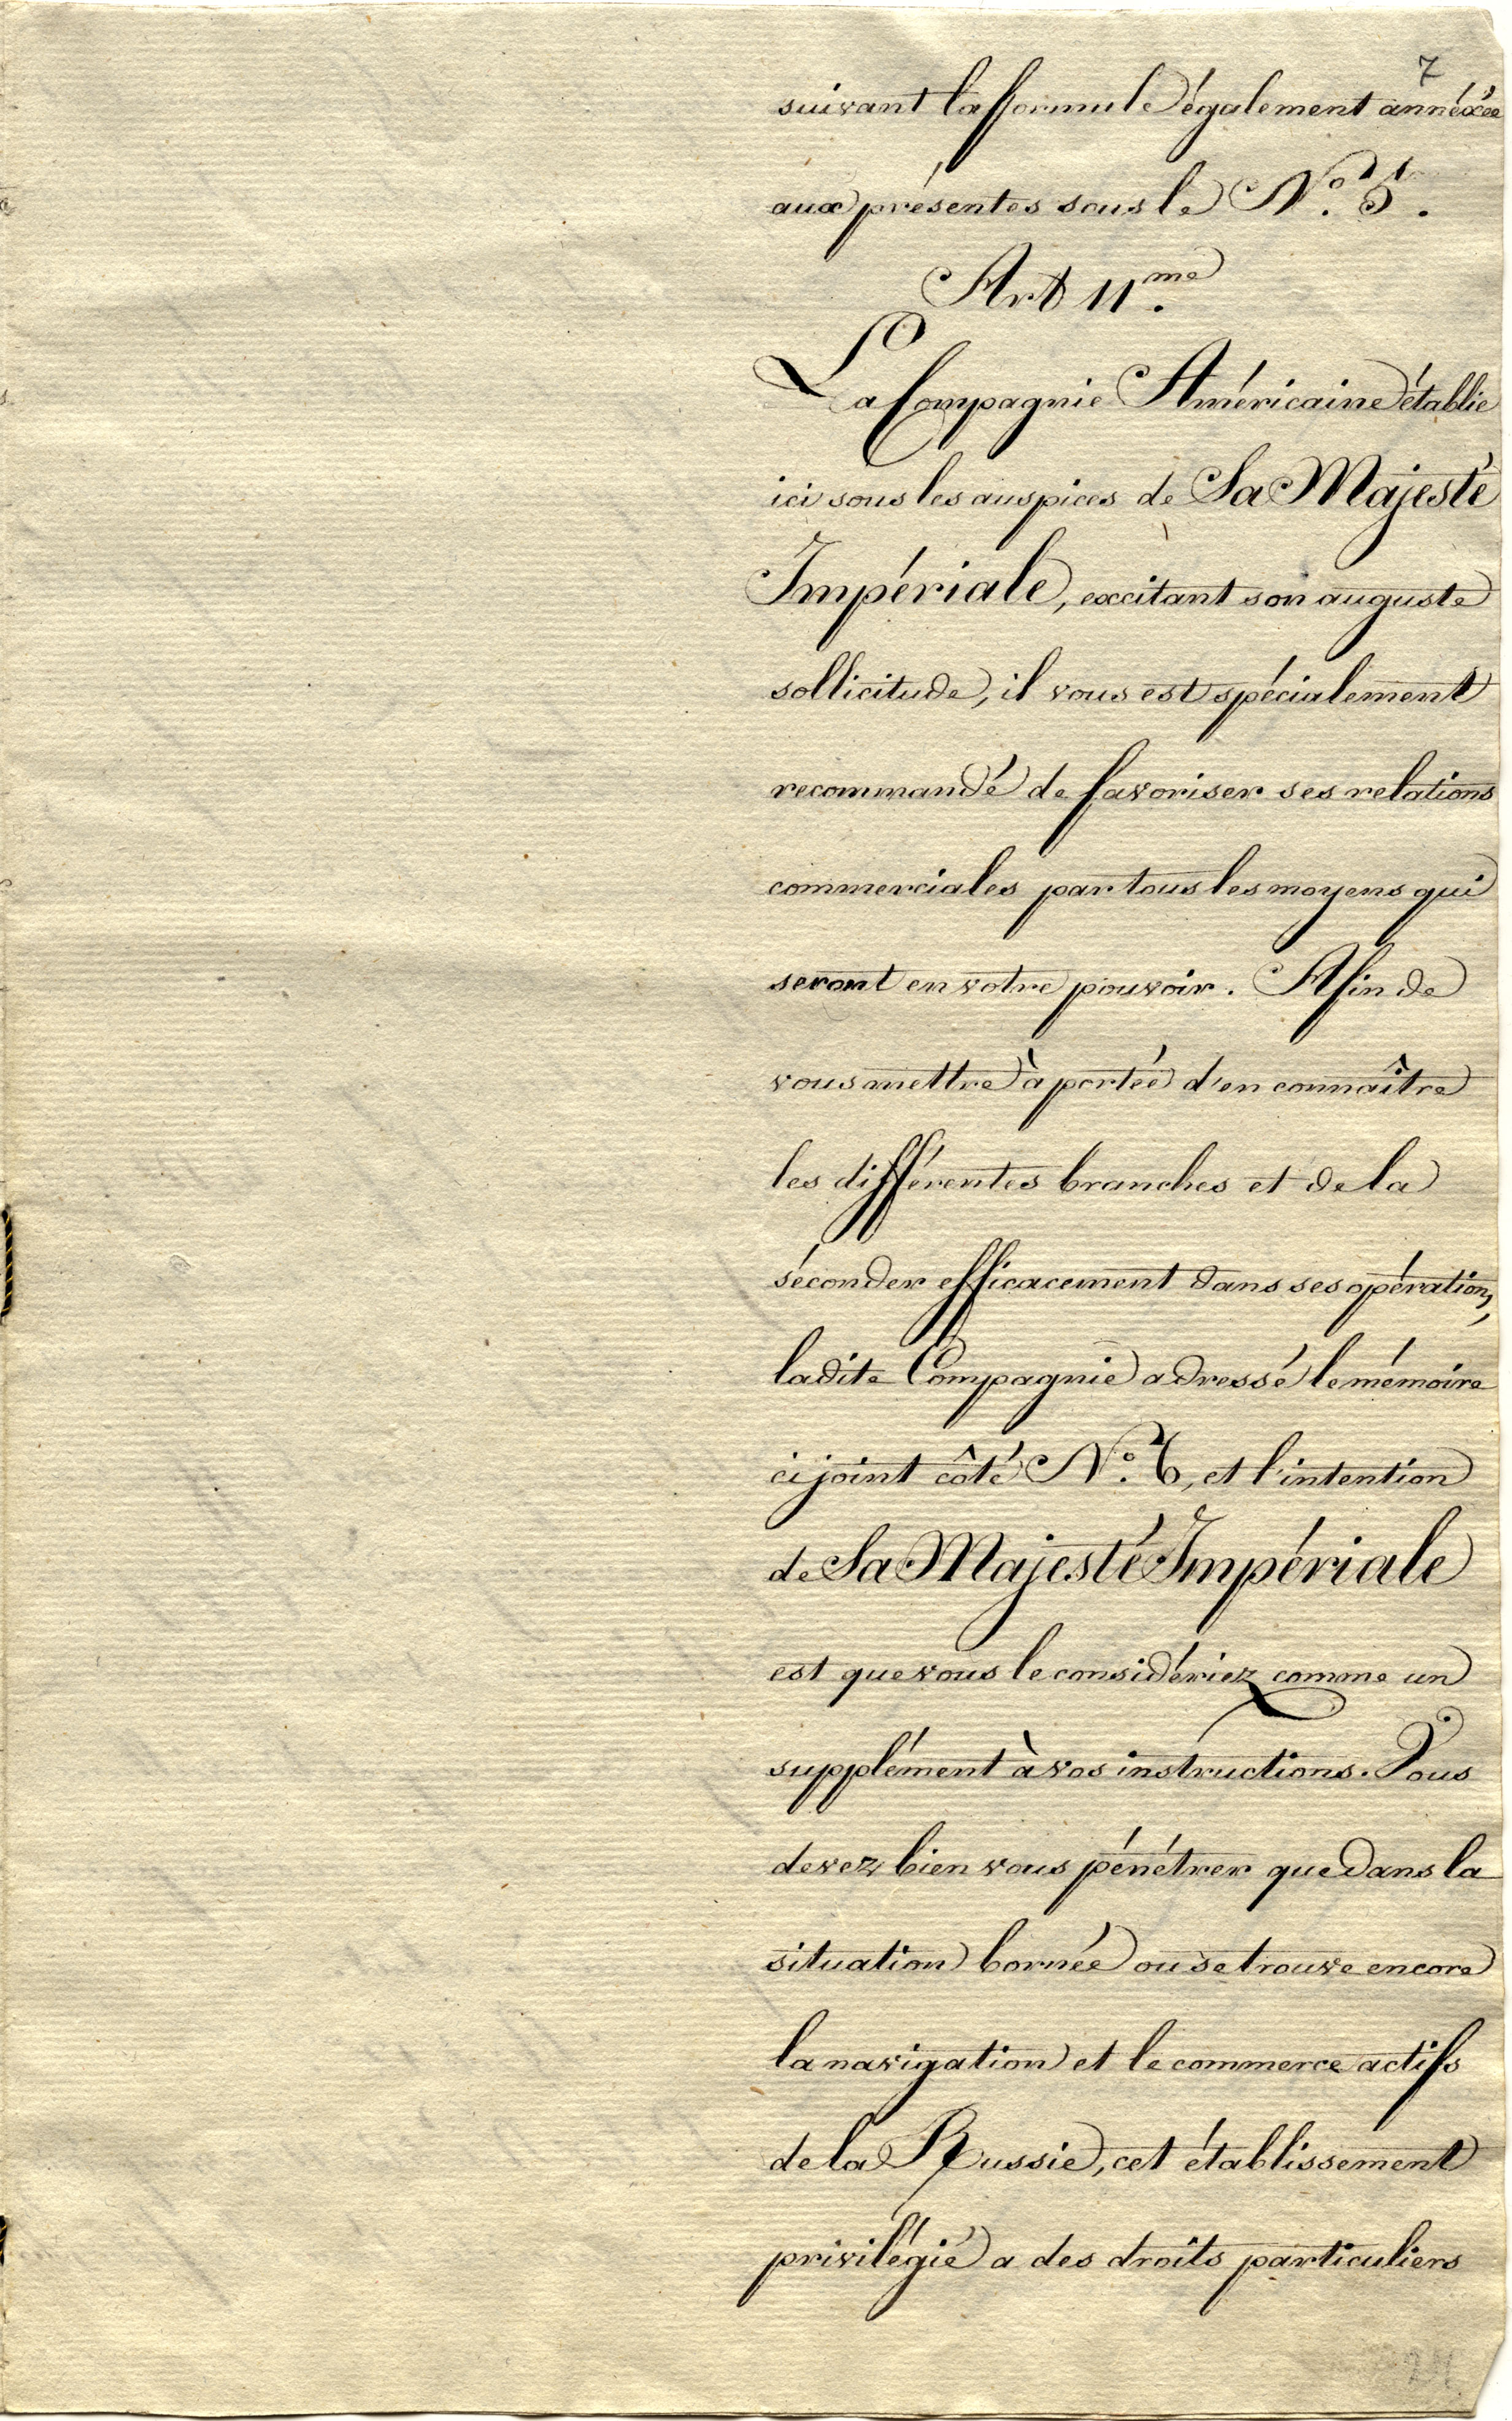 7
suivant la formule également annéxée
aux présentes sous le N.º 5.
Art 11.me
La Compagnie Américaine établie
ici sous les auspices de Sa Majesté
Impériale, excitant son auguste
sollicitude, il vous est spécialement
recommandé de favoriser ses relations
commerciales par tous les moyens qui
seront en votre pouvoir. Afin de
vous mettre à portée d'en connaître
les différentes branches et de la
séconder efficacement dans ses opérations,
ladite Compagnie a dressé le mémoire
ci joint côté N.º 6, et l'intention
de Sa Majesté Impériale
est que vous le considériez comme un
supplément à vos instructions. Vous
devez bien vous pénétrer que dans la
situation bornée ou se trouve encore
la navigation et le commerce actifs
de la Russie, cet établissement
privilégié a des droits particuliers